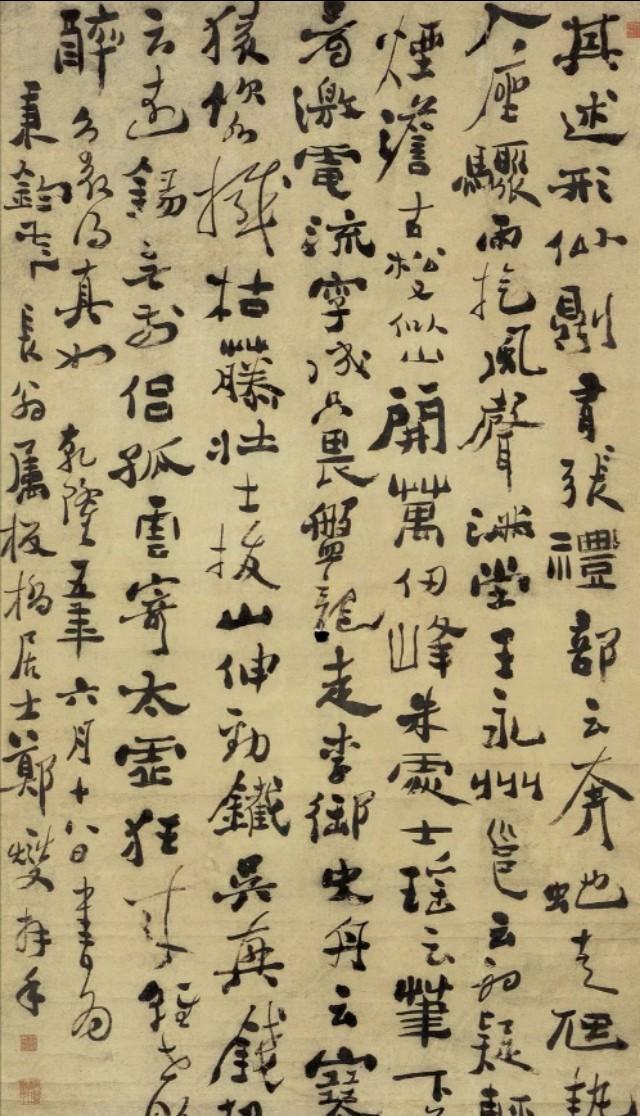 其述形似則有張禮部云奔虵走虺勢
入座驟雨旋風聲滿堂王永州邕云初疑輕
煙澹古松又似山開萬仞峰朱處士瑶云筆下
看激電流字成只畏盤龍走李御史舟云寒
猿飲水撼枯藤壯士拔山伸勁鐵吳興錢起
云遠錫無前侶孤雲寄太虛狂來輕世
醉裏得真如 乾隆五年六月十八日書為
秉鈞長翁屬板橋居士鄭燮拜手